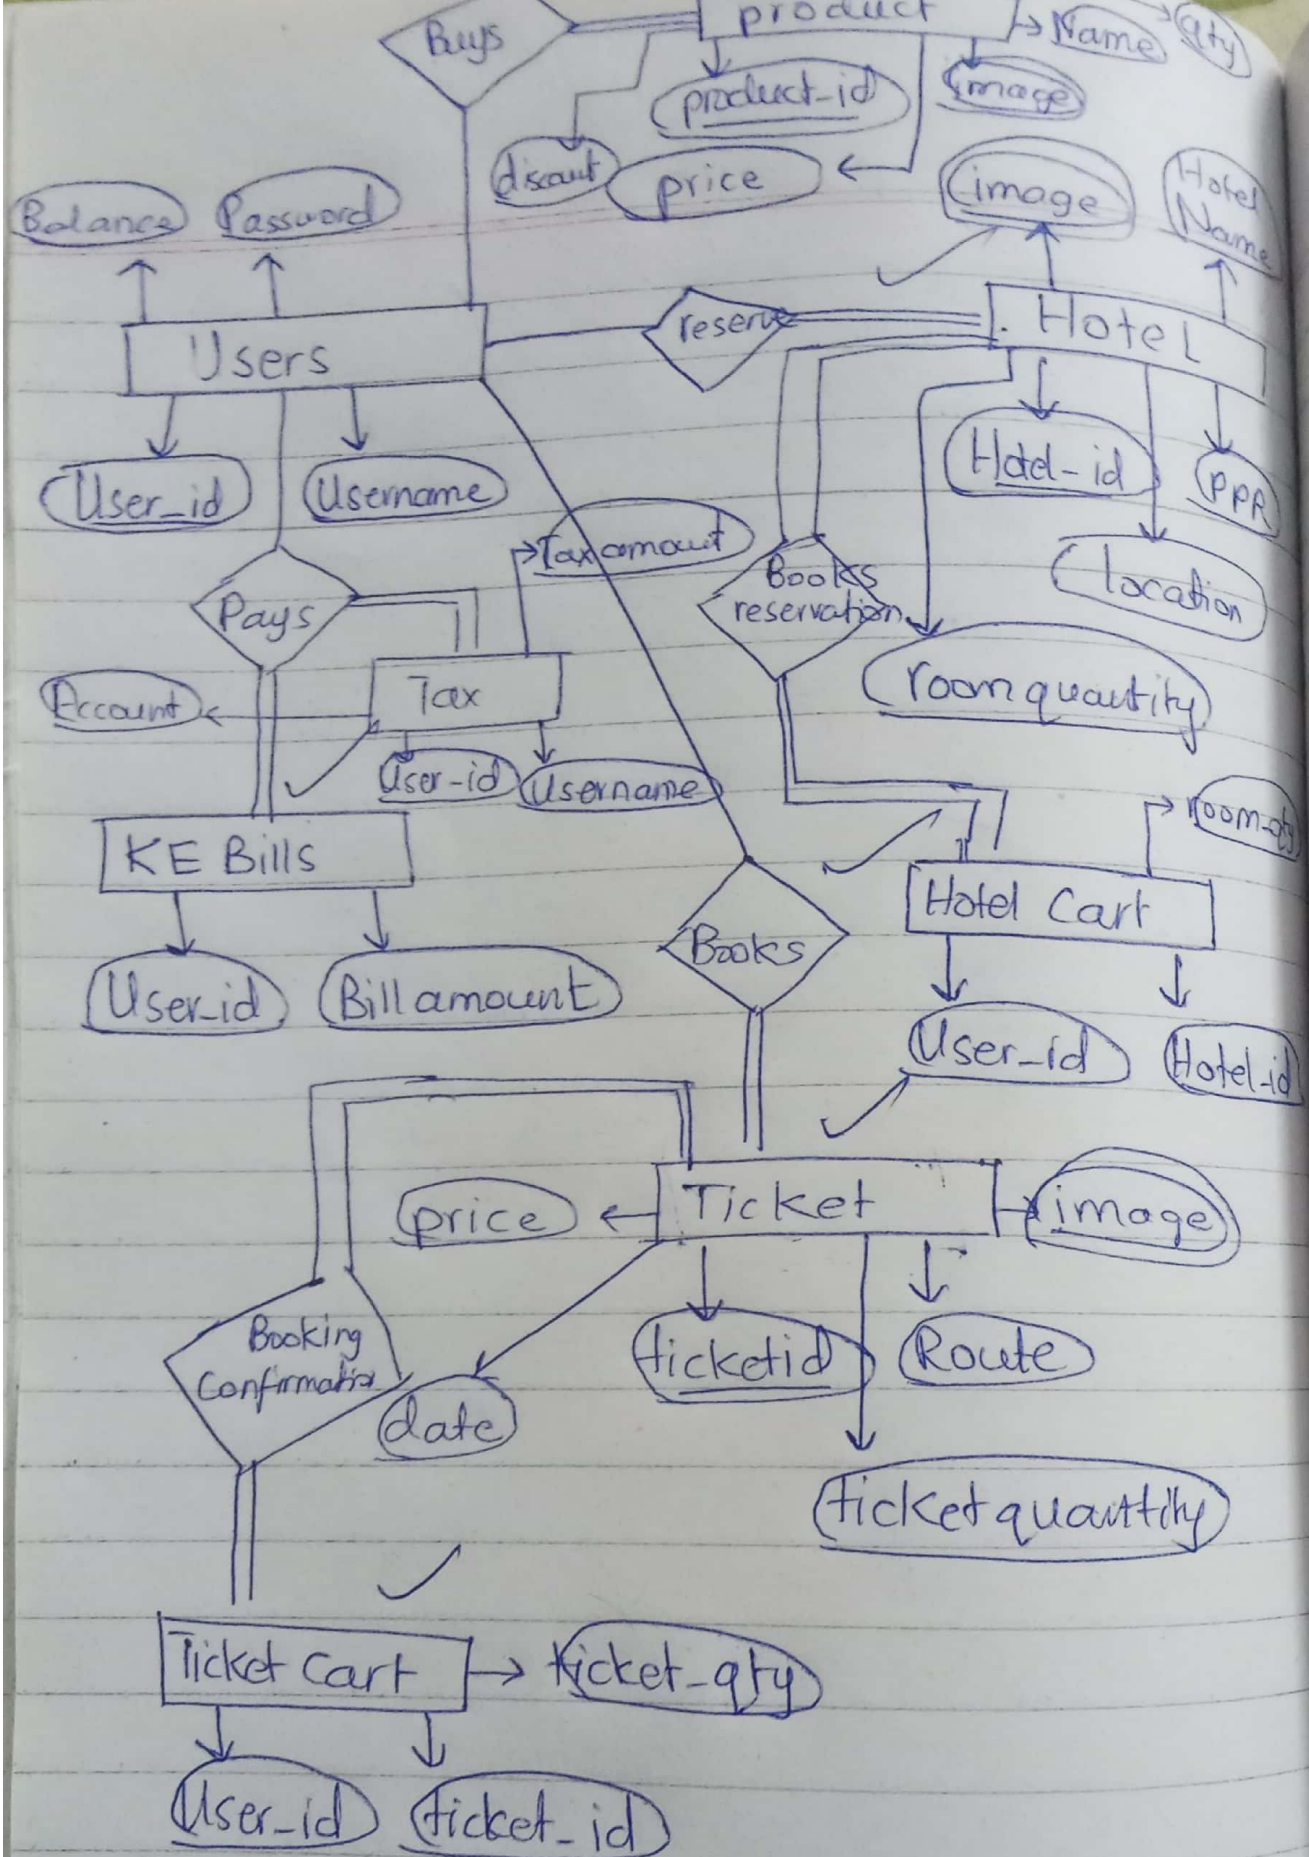 Buys
product
Name
qty
product_id
image
discout
price
image
Hotel
Name
Balance
Password
Users
reserve
Hotel
User_id
Username
Hotel-id
PPR
Tax amout
Books
reservation
location
Pays
Account
Tax
room quautity
User-id
Username
room-qty
KE Bills
Hotel Cart
Books
User_id
Bill amount
User_id
Hotel_id
price
Ticket
image
Booking
Confirmatio
date
ticketid
Route
ticket quautity
Ticket Cart
ticket_qty
User_id
ticket_id